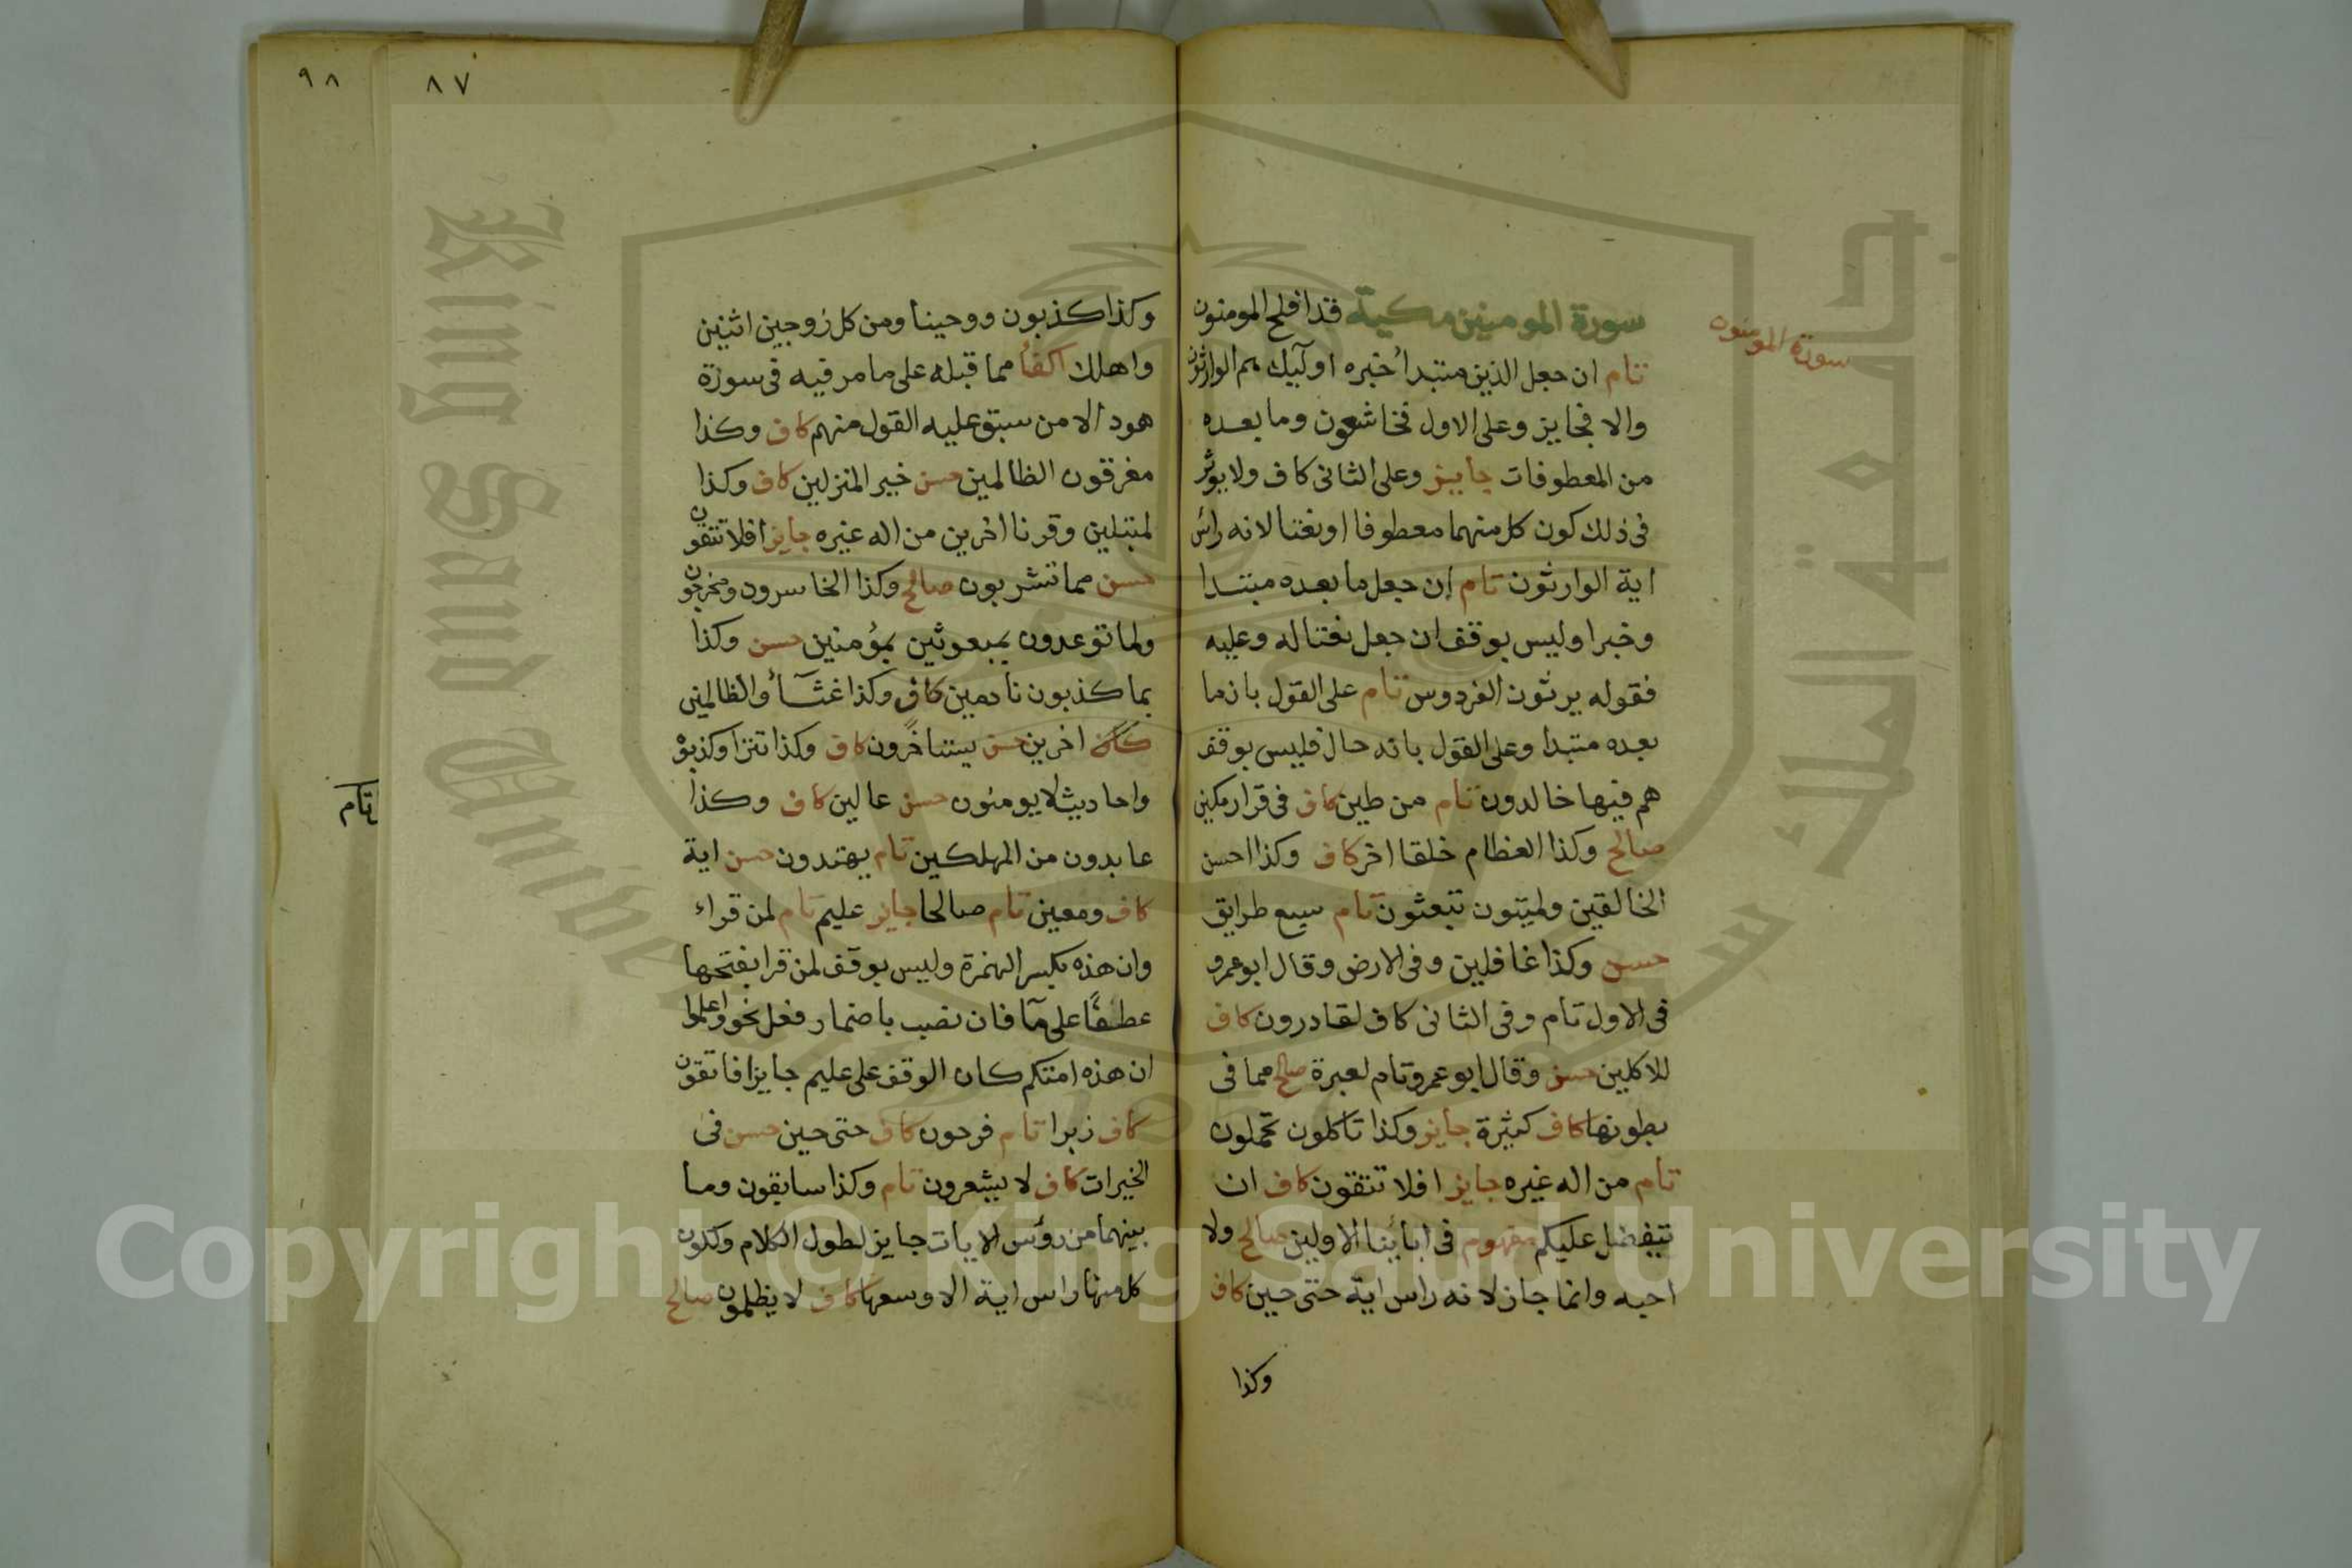 سورة المومنون
سورة المومنين مكية قد افلح المومنون
تام ان جعل الذين مبتدأ خبره اولئيك هم الوارثون
والا فجايز وعلى الاول فخاشعون وما بعده
من المعطوفات جايز وعلى الثانى كاف ولا يوثر
فى ذلك كون كل منهما معطوفا او نعتا لانه راس
اية الوارثون تام ان جعل ما بعده مبتدا
وخبرا وليس بوقف ان جعل نعتا له وعليه
فقوله يرثون الفردوس تام على القول بان ما
بعده مبتدا وعلى القول بانه حال فليس بوقف
هم فيها خالدون تام من طين كاف فى قرار مكين
صالح وكذا العظام خلقا اخر كاف وكذا احسن
الخالقين ولميتون تبعثون تام سبع طرايق
حسن وكذا غافلين وفى الارض وقال ابو عمرو
فى الاول تام وفى الثانى كاف لقادرون كاف
للاكلين حسن وقال ابو عمرو تام لعبرة صالح مما فى
بطونها كاف كثيرة جايز وكذا تاكلون تحملون
تام من اله غيره جايز افلا تتقون كاف ان
يتفضل عليكم مفهوم فى ابائنا الاولين صالح ولا
احبه وانما جاز لانه راس اية حتى حين كاف
وكذا
٨٧
٩٨
وكذا كذبون ووحينا ومن كل زوجين اثنين
واهلك اكفأ مما قبله على ما مر فيه فى سورة
هود الا من سبق عليه القول منهم كاف وكذا
مغرقون الظالمين حسن خير المنزلين كاف وكذا
لمبتلين وقرنا اخرين من اله غيره جايز افلا تتقون
حسن مما تشربون صالح وكذا الخاسرون ومخرجون
ولما توعدون بمبعوثين بمؤمنين حسن وكذا
بما كذبون نادمين كاف وكذا غثآء والظالمين
كاف اخرين حسن يستاخرون كاف وكذا تترا وكذبوه
واحاديث لا يومنون حسن عالين كاف وكذا
عابدون من المهلكين تام يهتدون حسن اية
كاف ومعين تام صالحا جايز عليم تام لمن قراء
وان هذه بكسر الهمزة وليس بوقف لمن قرا بفتحها
عطفًا على مآ فان نصب باضمار فعل نحو واعلموا
ان هذه امتكم كان الوقف على عليم جايزا فاتقون
كاف زبرا تام فرحون كاف حتى حين حسن فى
الخيرات كاف لا يشعرون تام وكذا سابقون وما
بينهما من رؤس الايات جايز لطول الكلام ولكون
كل منها راس اية الا وسعها كاف لا يظلمون صالح
تام
جامعة الملك سعود
King Saud Unive
Copyright © King Saud University